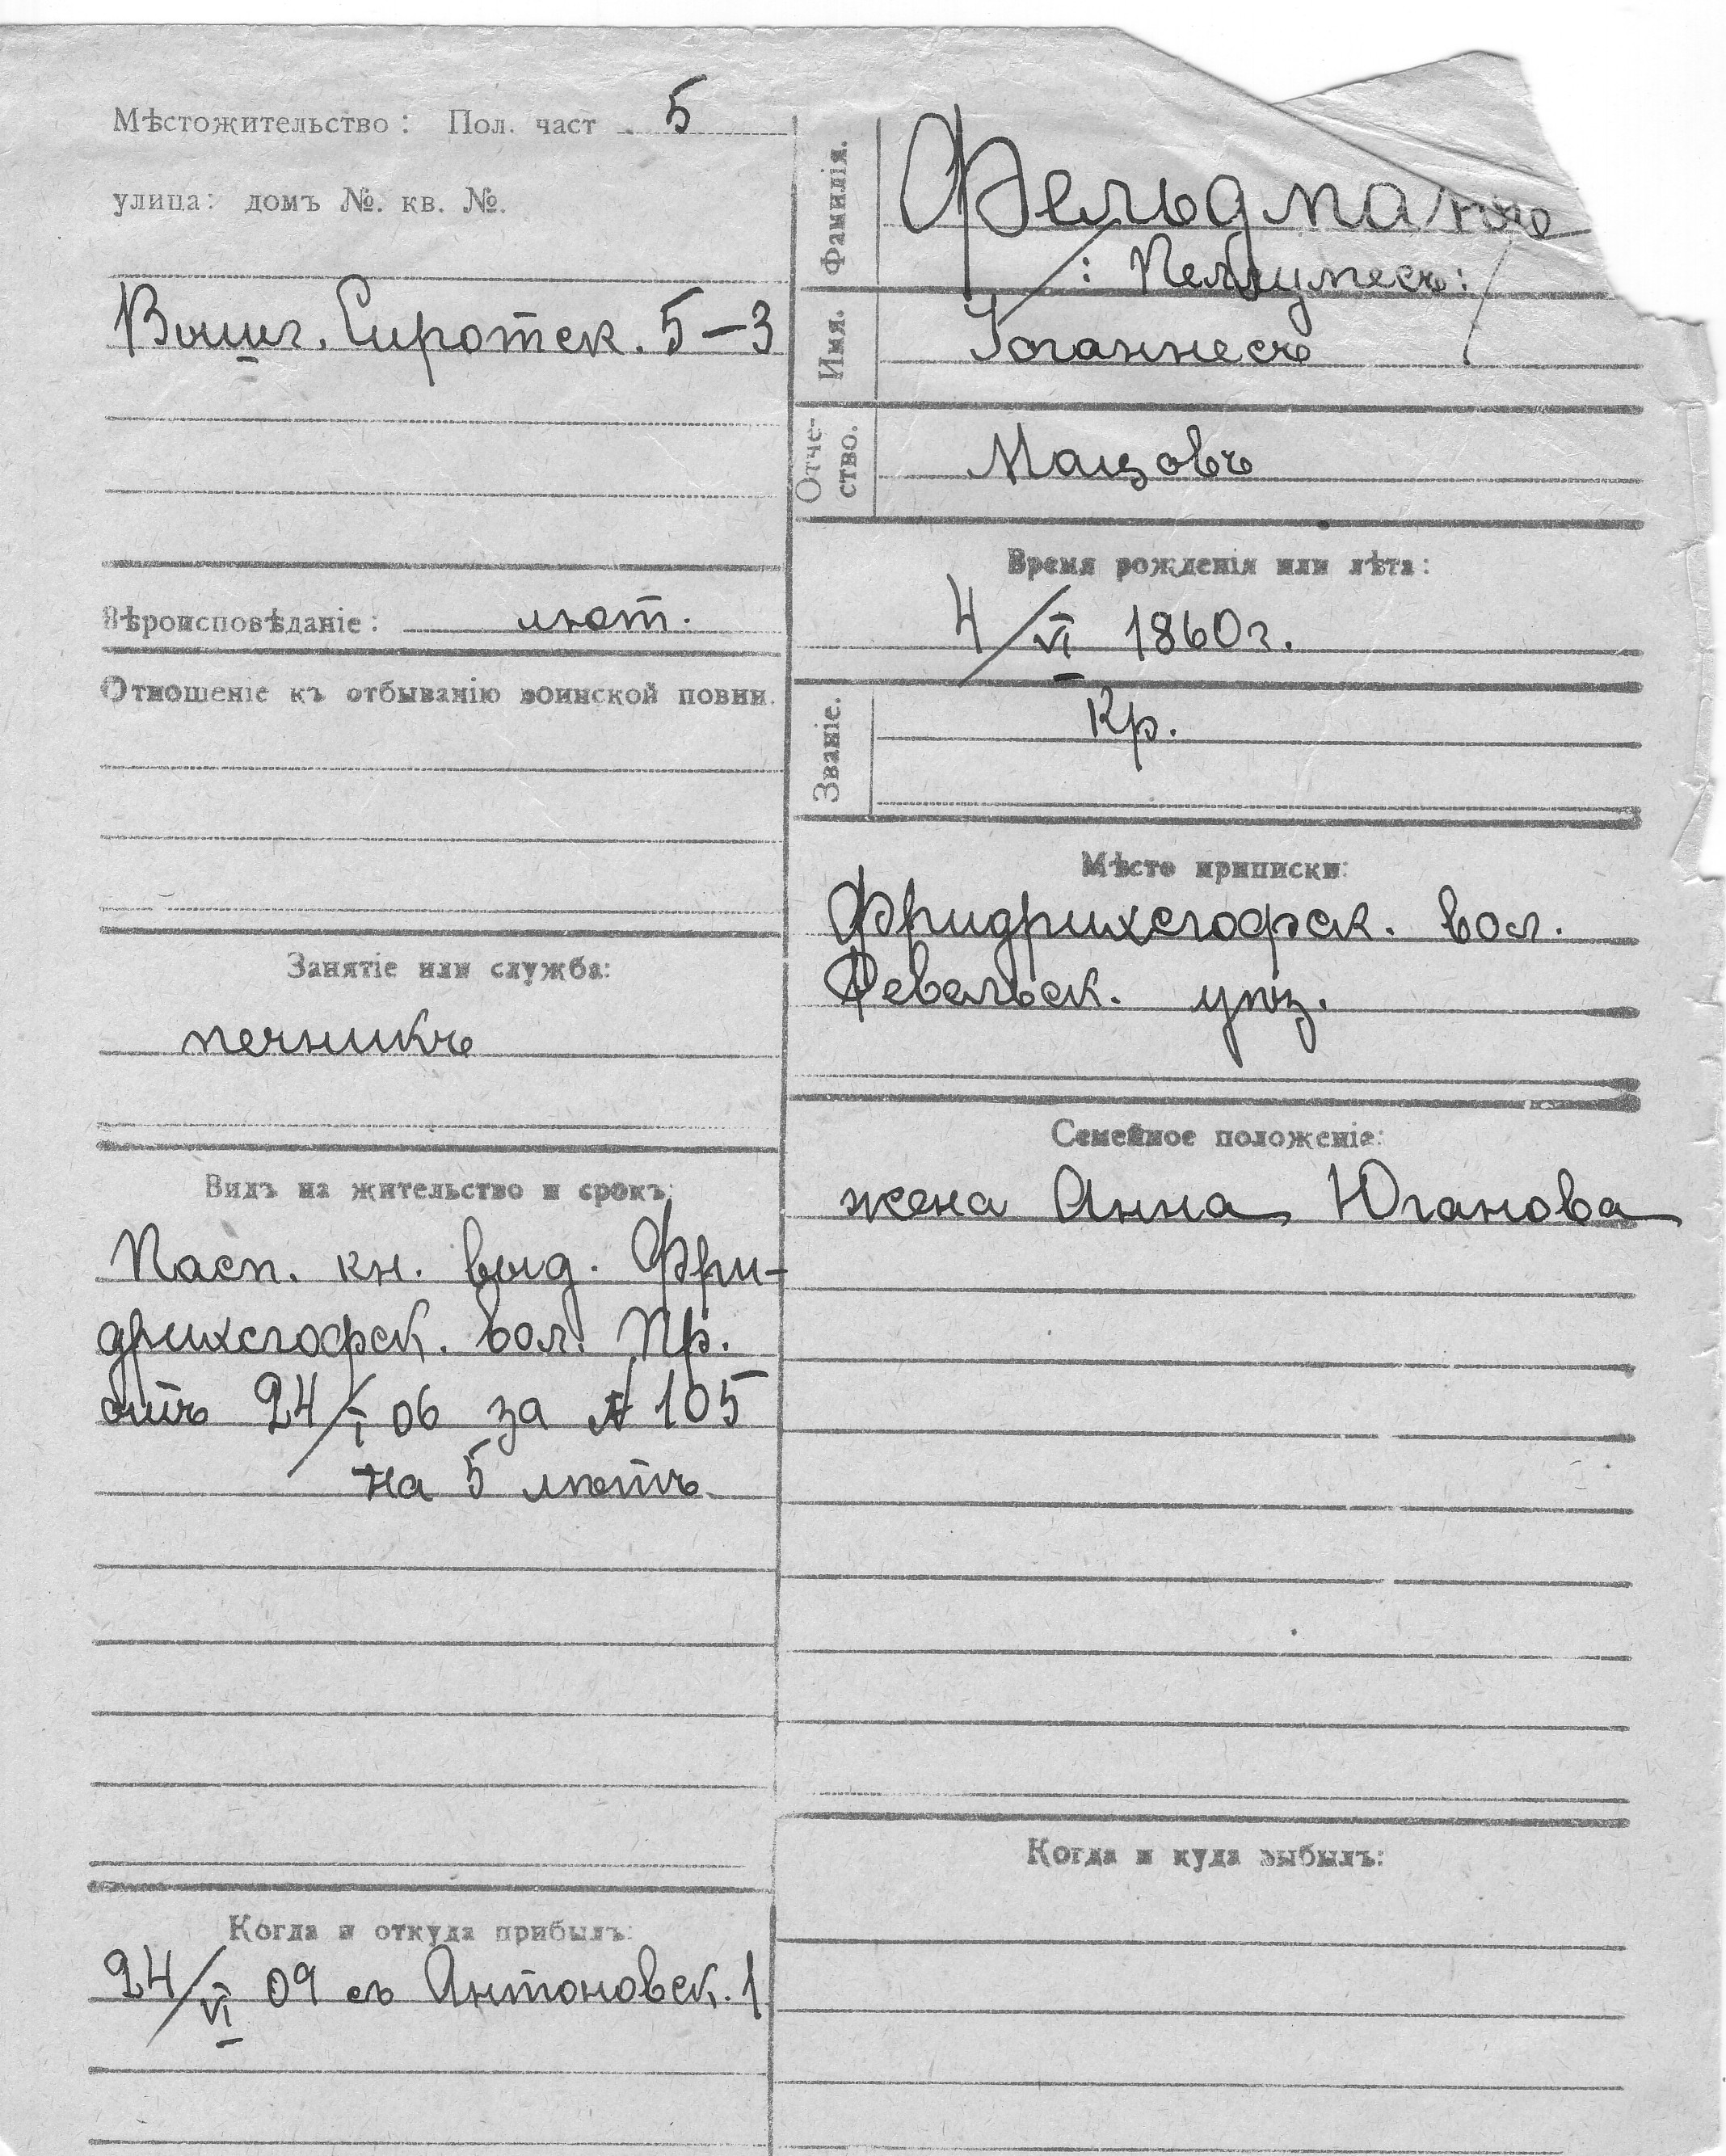 Мѣстожительство: Пол. част 5
улица: домъ №. кв. №.
Вышг. Сиротск. 5–3
Вѣроисповѣданіе: лют.
Отношеніе къ отбыванію воинской повин.
Занятіе или служба:
печникъ
Видъ на жительство и срокъ:
Пасп. кн. выд. Фри-
дрихсгофск. вол. Пр.
отъ 24/I 06 за № 105
на 5 лѣтъ
Когда и откуда прибылъ:
24/VI 09 съ Антоновск. 1
Фамилія. Фельдманъ
Имя. Іоганнесъ
Отче-
ство. Мацовъ
Время рожденія или лѣта:
4/VI 1860 г.
Званіе. Кр.
Мѣсто приписки:
Фридрихсгофск. вол.
Ревельск. уѣз.
Семейное положеніе:
жена Анна Юганова
Когда и куда выбылъ: